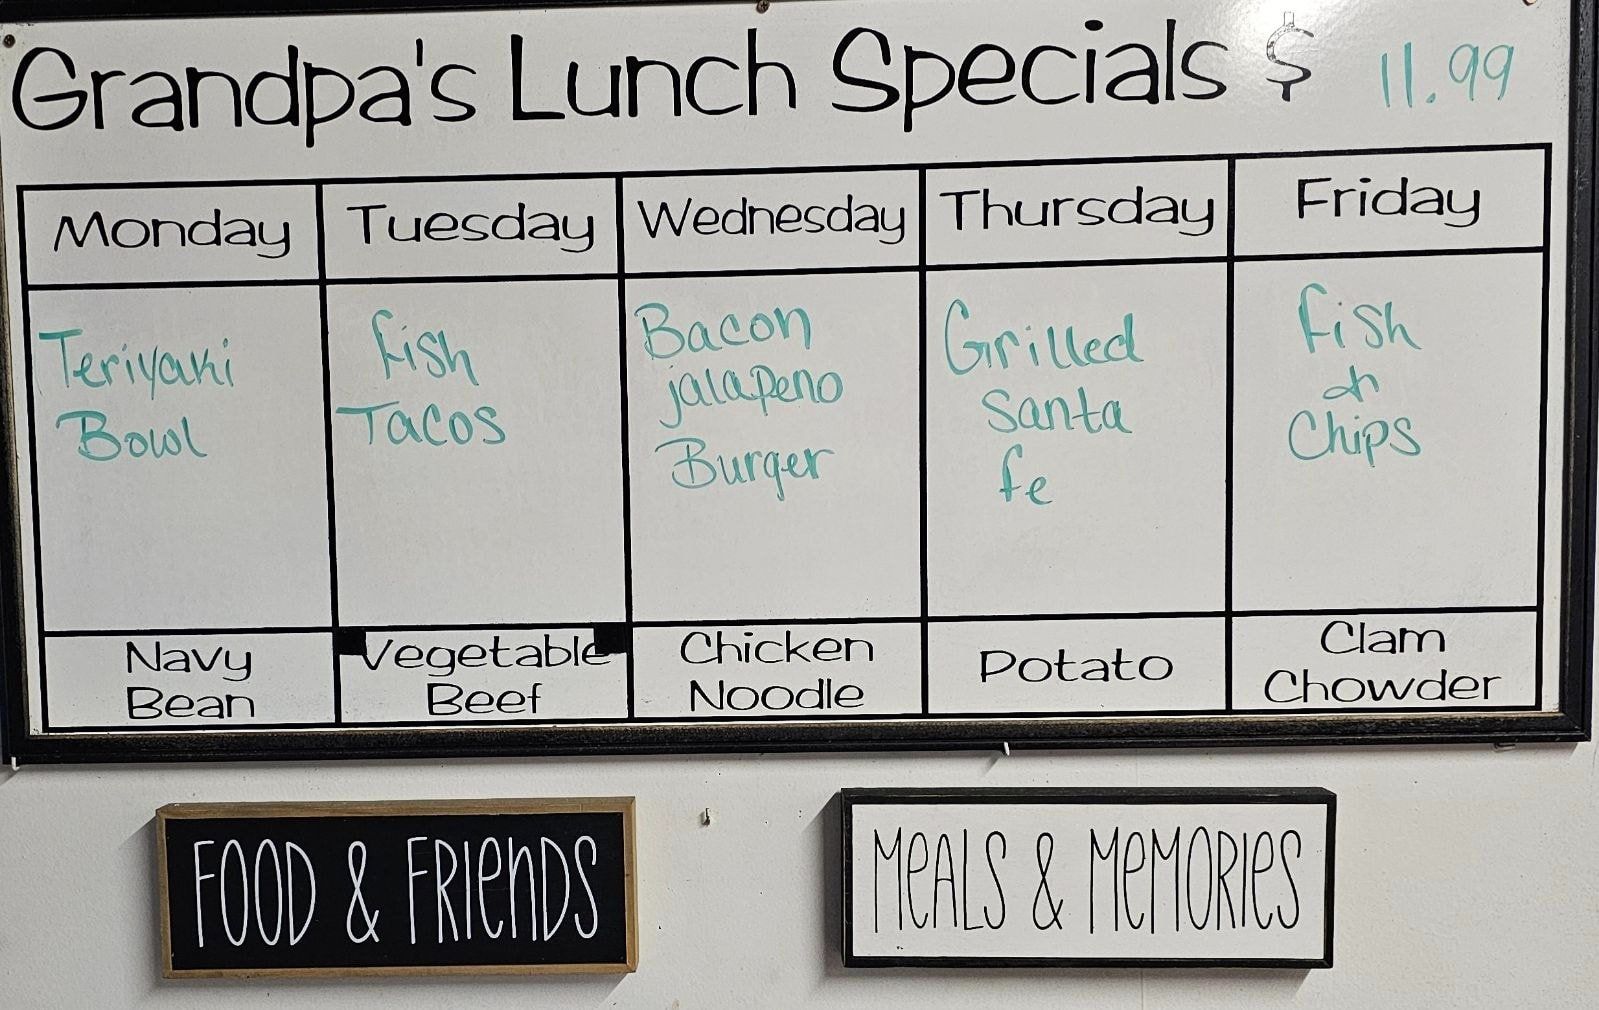 Grandpa's Lunch Specials $ 11.99
Monday
Tuesday
Wednesday
Thursday
Friday
Teriyaki
Bowl
Fish
Tacos
Bacon
jalapeno
Burger
Grilled
Santa
fe
Fish
&
Chips
Navy
Bean
Vegetable
Beef
Chicken
Noodle
Potato
Clam
Chowder
FOOD & FRIENDS
MEALS & MEMORIES